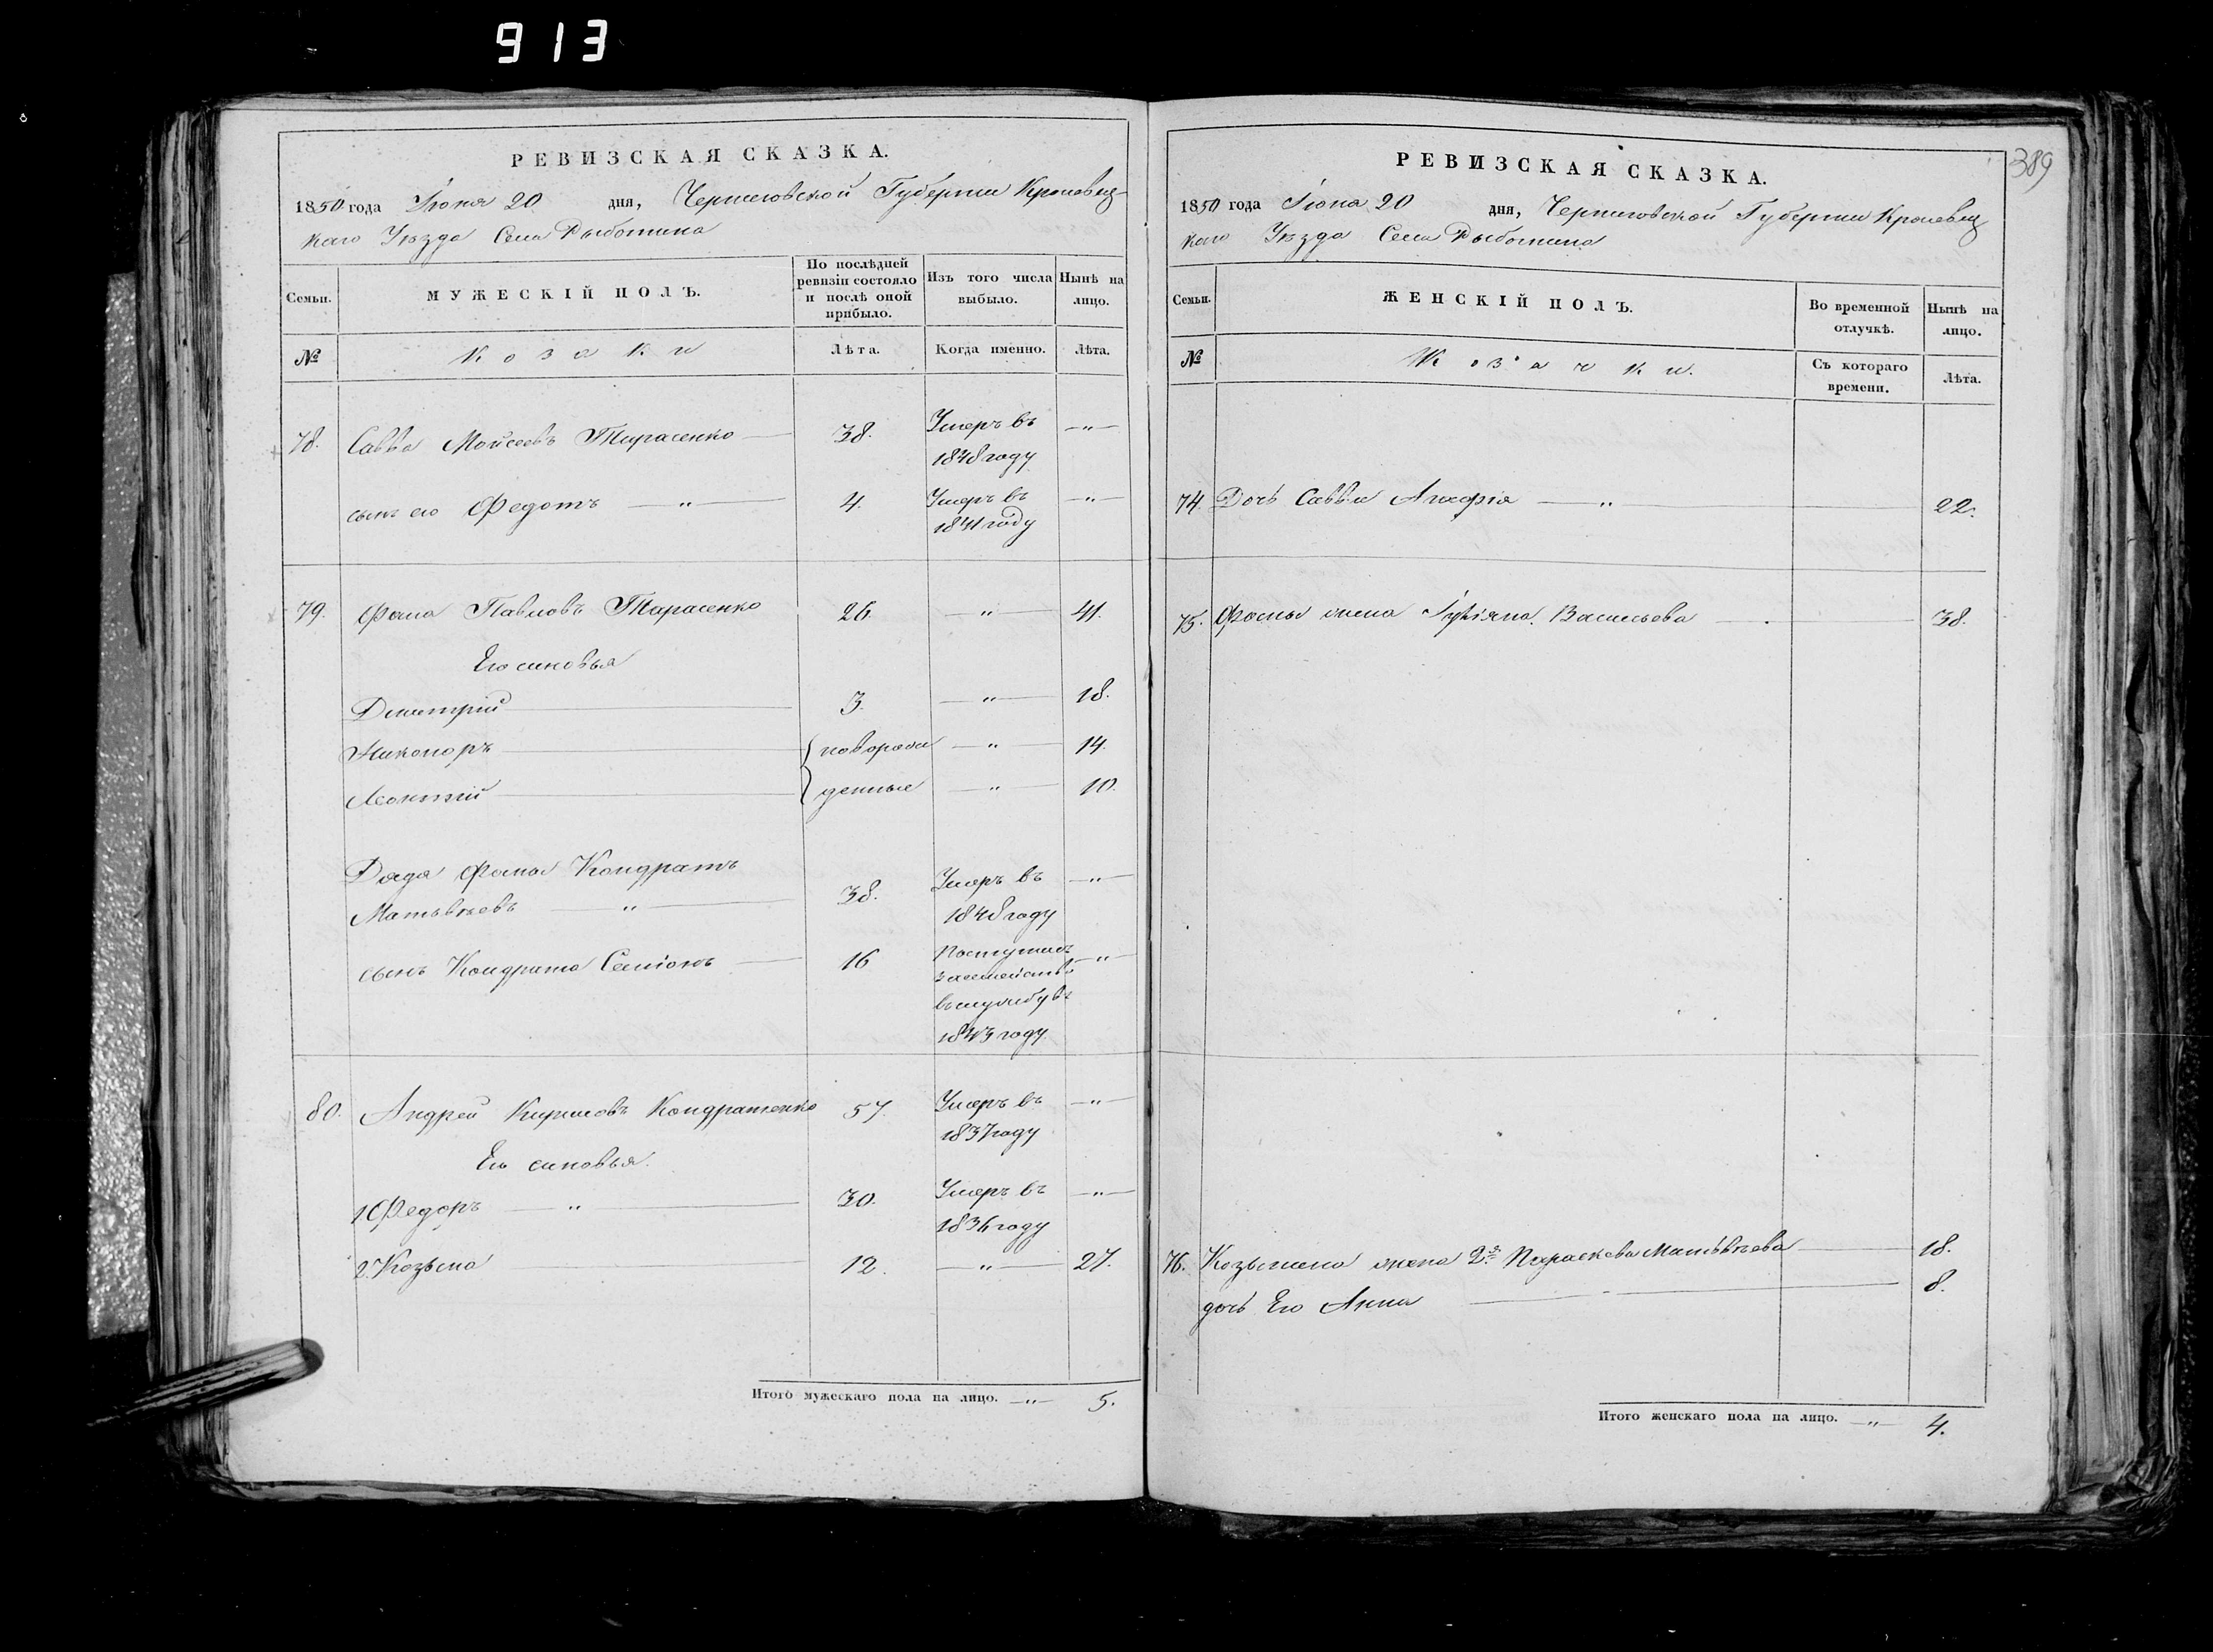 913
РЕВИЗСКАЯ СКАЗКА.
1850 года Іюня 20 дня, Черниговской Губерніи Кролевец
каго Уѣзда Села Рыботина
Семьи. МУЖЕСКІЙ ПОЛЪ. По послѣдней ревизіи состояло и послѣ оной прибыло. Изъ того числа выбыло. Нынѣ на лицо.
№ Козаки Лѣта. Когда именно. Лѣта.
78. Савва Мойсеевъ Тарасенко 38. Умеръ въ 1848 году —"—
сынъ его Федотъ —"— 4. Умеръ въ 1841 году —"—
79. Фома Павловъ Тарасенко 26. —"— 41.
Его сыновья
Дмитрій 3. —"— 18.
Никоноръ новорож —"— 14.
Леонтій денные —"— 10.
Дядя Фомы Кондратъ
Матвѣевъ —"— 38. Умеръ въ 1848 году —"—
сынъ Кондрата Семіонъ 16 Поступилъ
въ службу въ
1843 году. —"—
80. Андрей Кириловъ Кондратенко 57. Умеръ въ 1837 году —"—
Его сыновья.
1 Федоръ —"— 30. Умеръ въ 1836 году —"—
2. Козьма 12. —"— 27.
Итого мужескаго пола на лицо. —"— 5.
389
РЕВИЗСКАЯ СКАЗКА.
1850 года Іюня 20 дня, Черниговской Губерніи Кролевец
каго Уѣзда Села Рыботина
Семьи. ЖЕНСКІЙ ПОЛЪ. Во временной отлучкѣ. Нынѣ на лицо.
№ Козачки. Съ котораго времени. Лѣта.
74. Дочь Саввы —"— 22.
75. Фомы жена Васильева 38.
76. Козьмина жена 2я Параскева Матвѣева 18.
дочь Его Анна 8.
Итого женскаго пола на лицо. —"— 4.